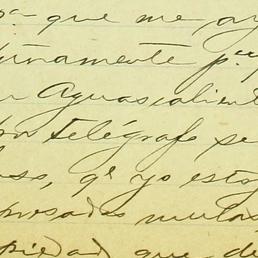 que me ay
tunamente pr
n Aguascalient
telégrafo se
so, qe yo esto
presadas mulas
piedad que de